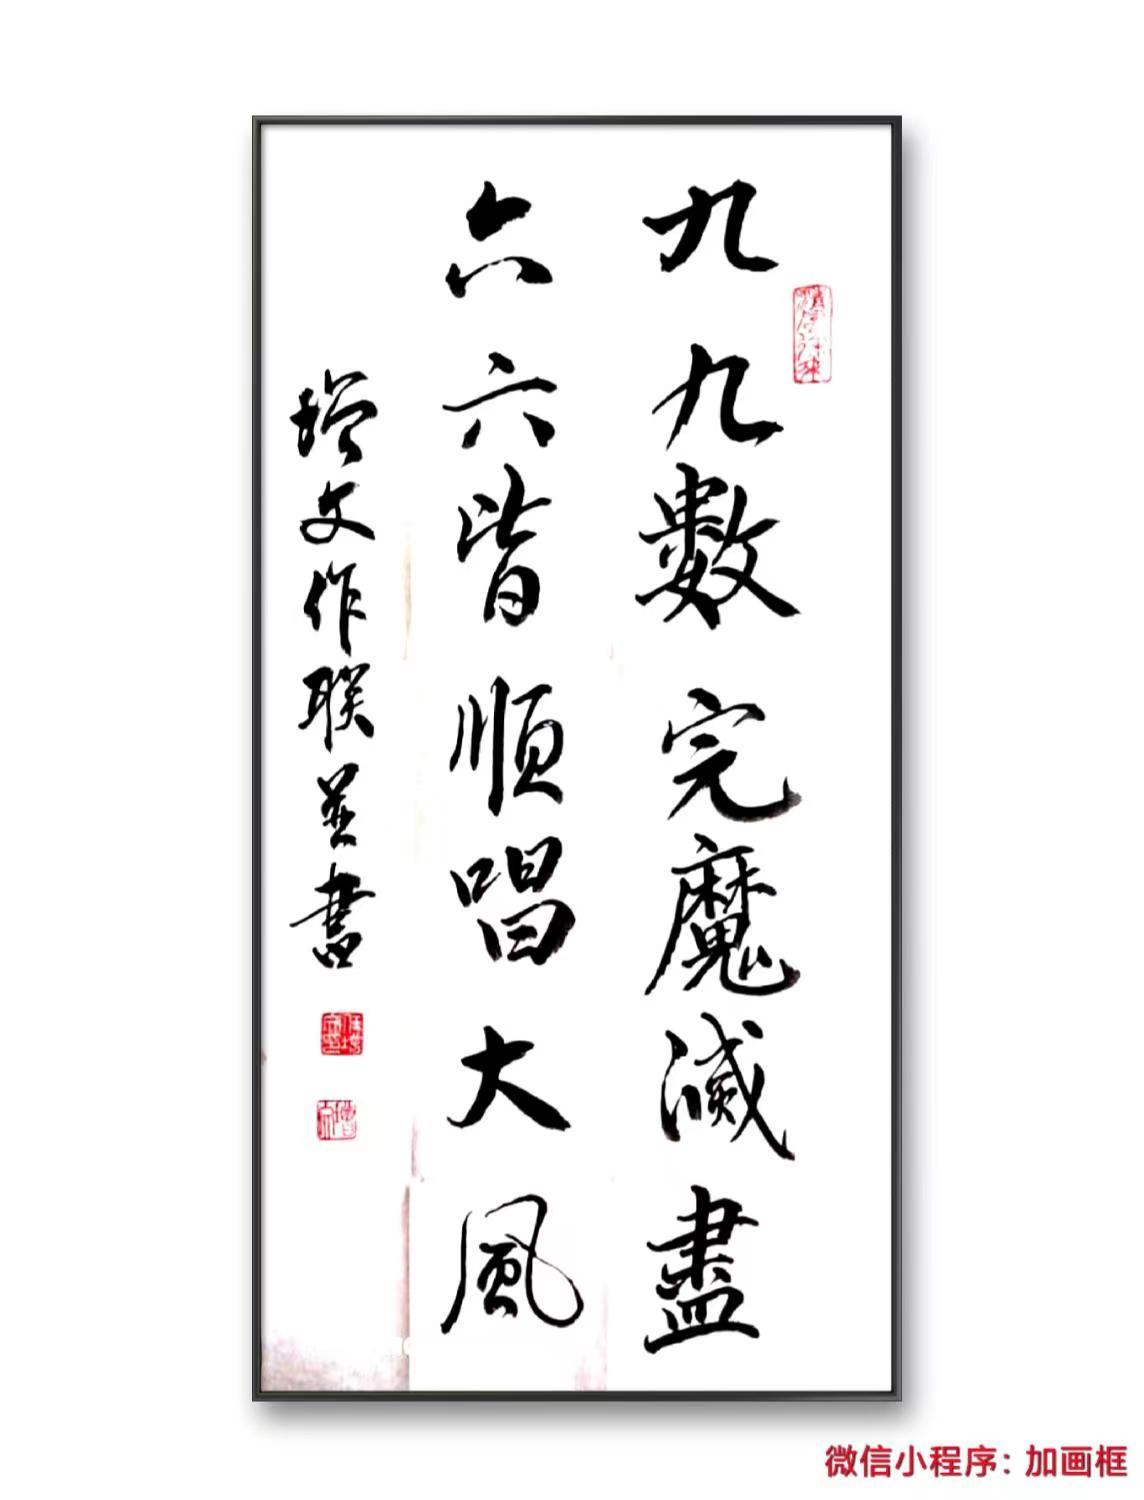 九九數完魔滅盡
六六皆順唱大風
增文作联並書
微信小程序：加画框